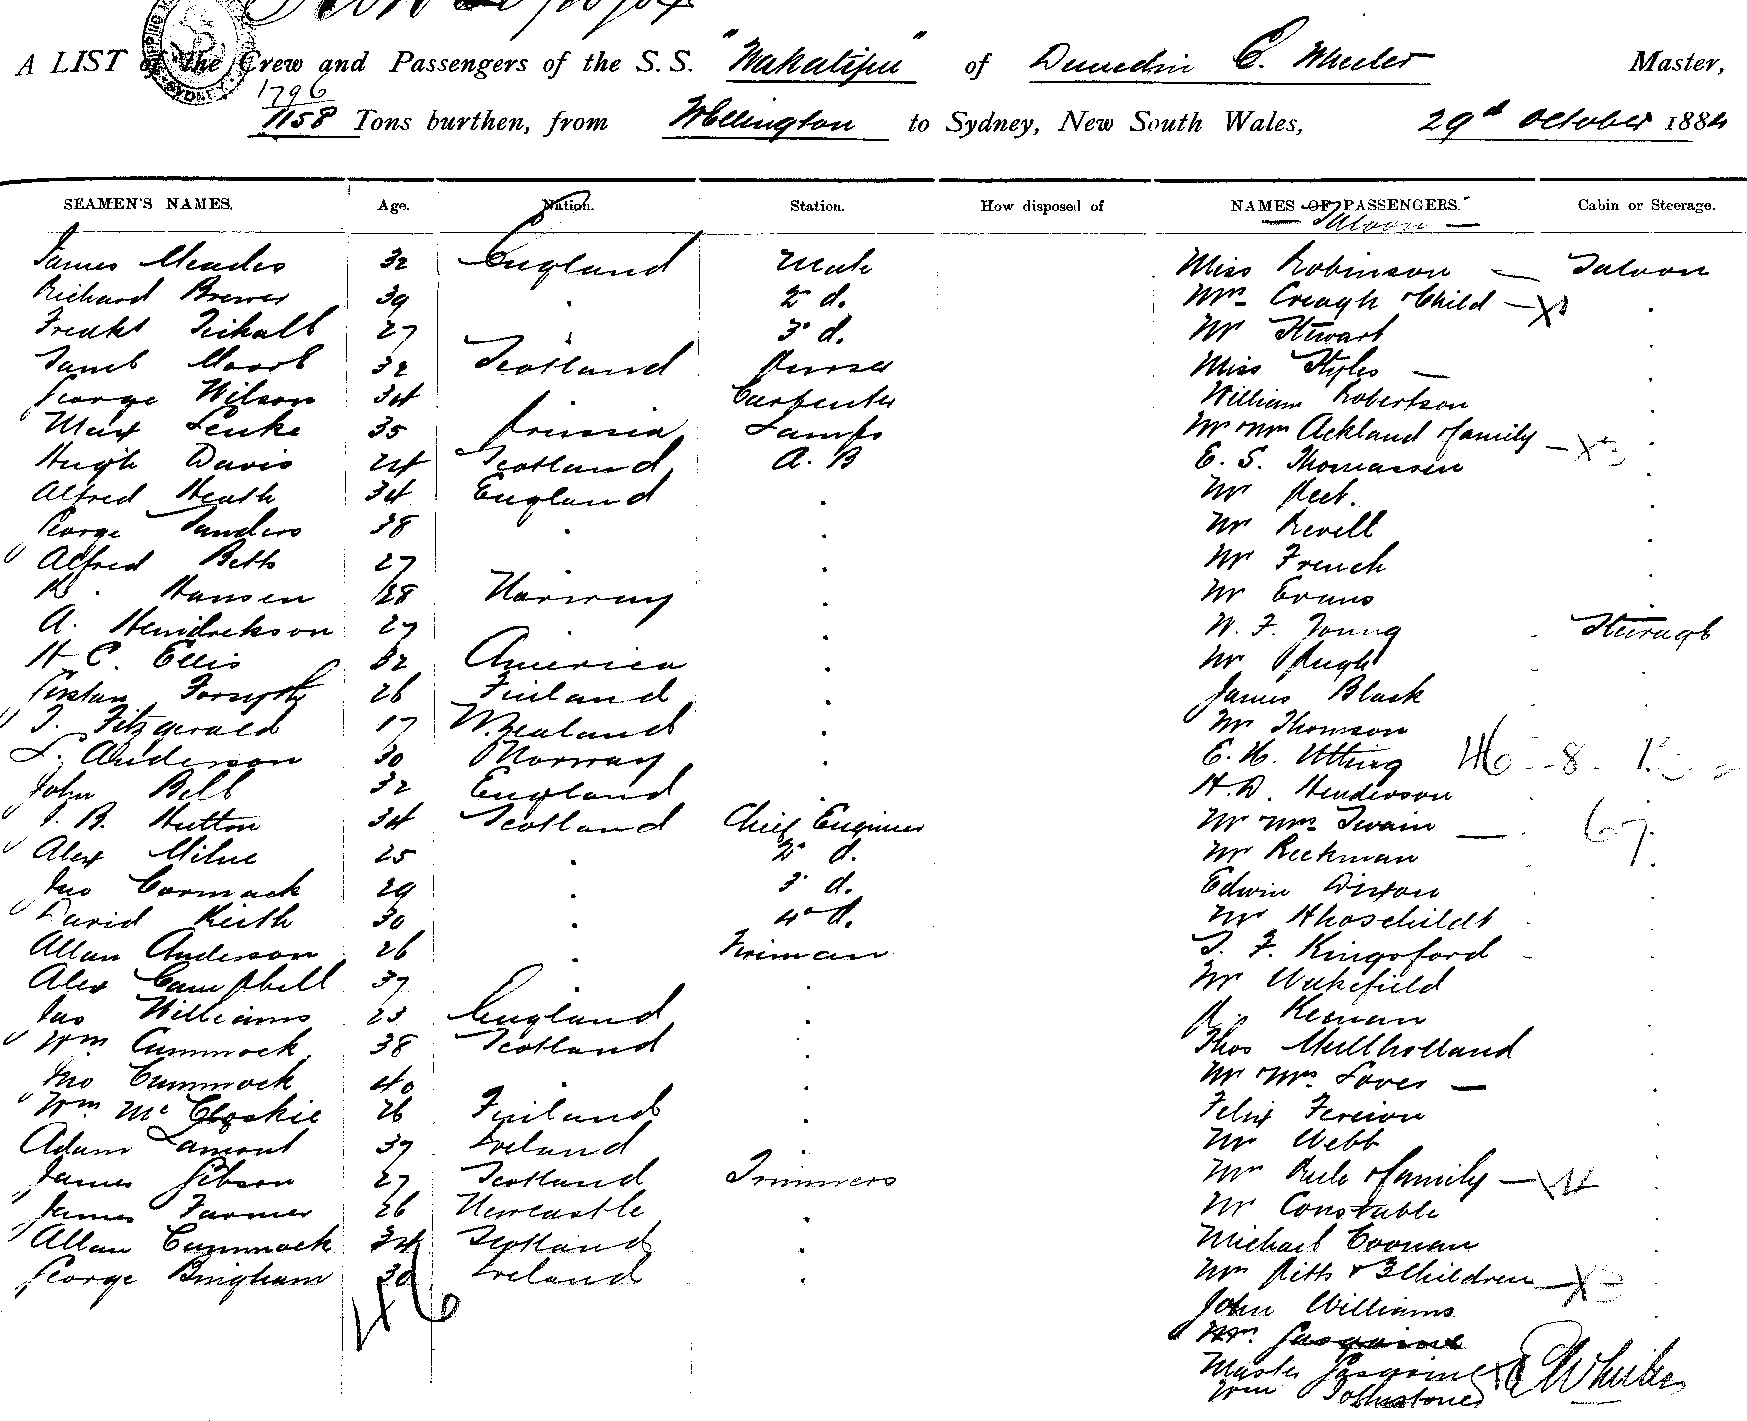 A LIST of the Crew and Passengers of the S.S. "Wakatipu" of Dunedin C. Wheeler Master,
1796
1158 Tons burthen, from Wellington to Sydney, New South Wales, 29d October 1884
SEAMEN'S NAMES. Age. Nation. Station. How disposed of NAMES OF PASSENGERS. Cabin or Steerage.
Saloon
James Meades 32 England Mate Miss Robinson Saloon
Richard Brewer 39 2 d. Mrs Creagh & Child
27 3 d. Mr Stewart
32 Scotland Purser Miss Styles
George Wilson 34 Carpenter William Robertson
Max Lenke 35 Prussia Lamps Mr & Mrs Ackland & family
Hugh Davis 24 Scotland A. B E. S. Thomassen
Alfred Heath 34 England Mr
George Sanders 38 Mr Revell
Alfred Betts 27 Mr French
Hansen 28 Norway Mr Evans
A. Hendrickson 27 W. F. Young Steerage
H C. Ellis 32 America Mr Pugh
Forsyth 26 Finland James Black
T. Fitzgerald 17 N. Zealand Mr Thomson
L. Anderson 30 Norway E. H. Utting 46 - 8
John Bell 32 England H. D. Henderson
B. Hutton 34 Scotland Chief Engineer Mr & Mrs Swain 67
Alex Milne 25 2 d. Mr Reekman
Jno Cormack 29 3 d. Edwin Dixon
David Keith 30 4 d. Mr
Allan Anderson 26 Fireman T. F. Kingsford
Alex Campbell 37 Mr Wakefield
Jas Williams 23 England Keenan
Wm Cummock 38 Scotland Thos Mullholland
Jno Cummock 40 Mr & Mrs Lover
Wm McCloskie 26 Finland Felix
Adam Lamont 37 Ireland Mr Webb
James Gibson 27 Scotland Trimmers Mrs & family
James Farmer 26 Newcastle Mr Constable
Allan Cummock 34 Scotland Michael Coonan
George Bingham 30 Ireland Mrs Pitts & 3 Children
46 John Williams
Mrs. Gasquine
Master Gasquine
Wm Johnstone
C Wheeler